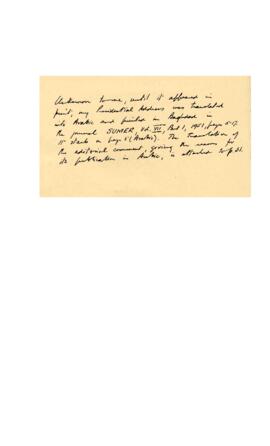 Unknown to me, until it appeared in
print, my Presidential Address was translated
into Arabic and printed in Baghdad in
the journal SUMER, Vol. VII, Part 1, 1951, pages 5-17.
It starts on page 5 (Arabic). The translation of
the editorial comment, giving the reason for
its publication in Arabic, is attached